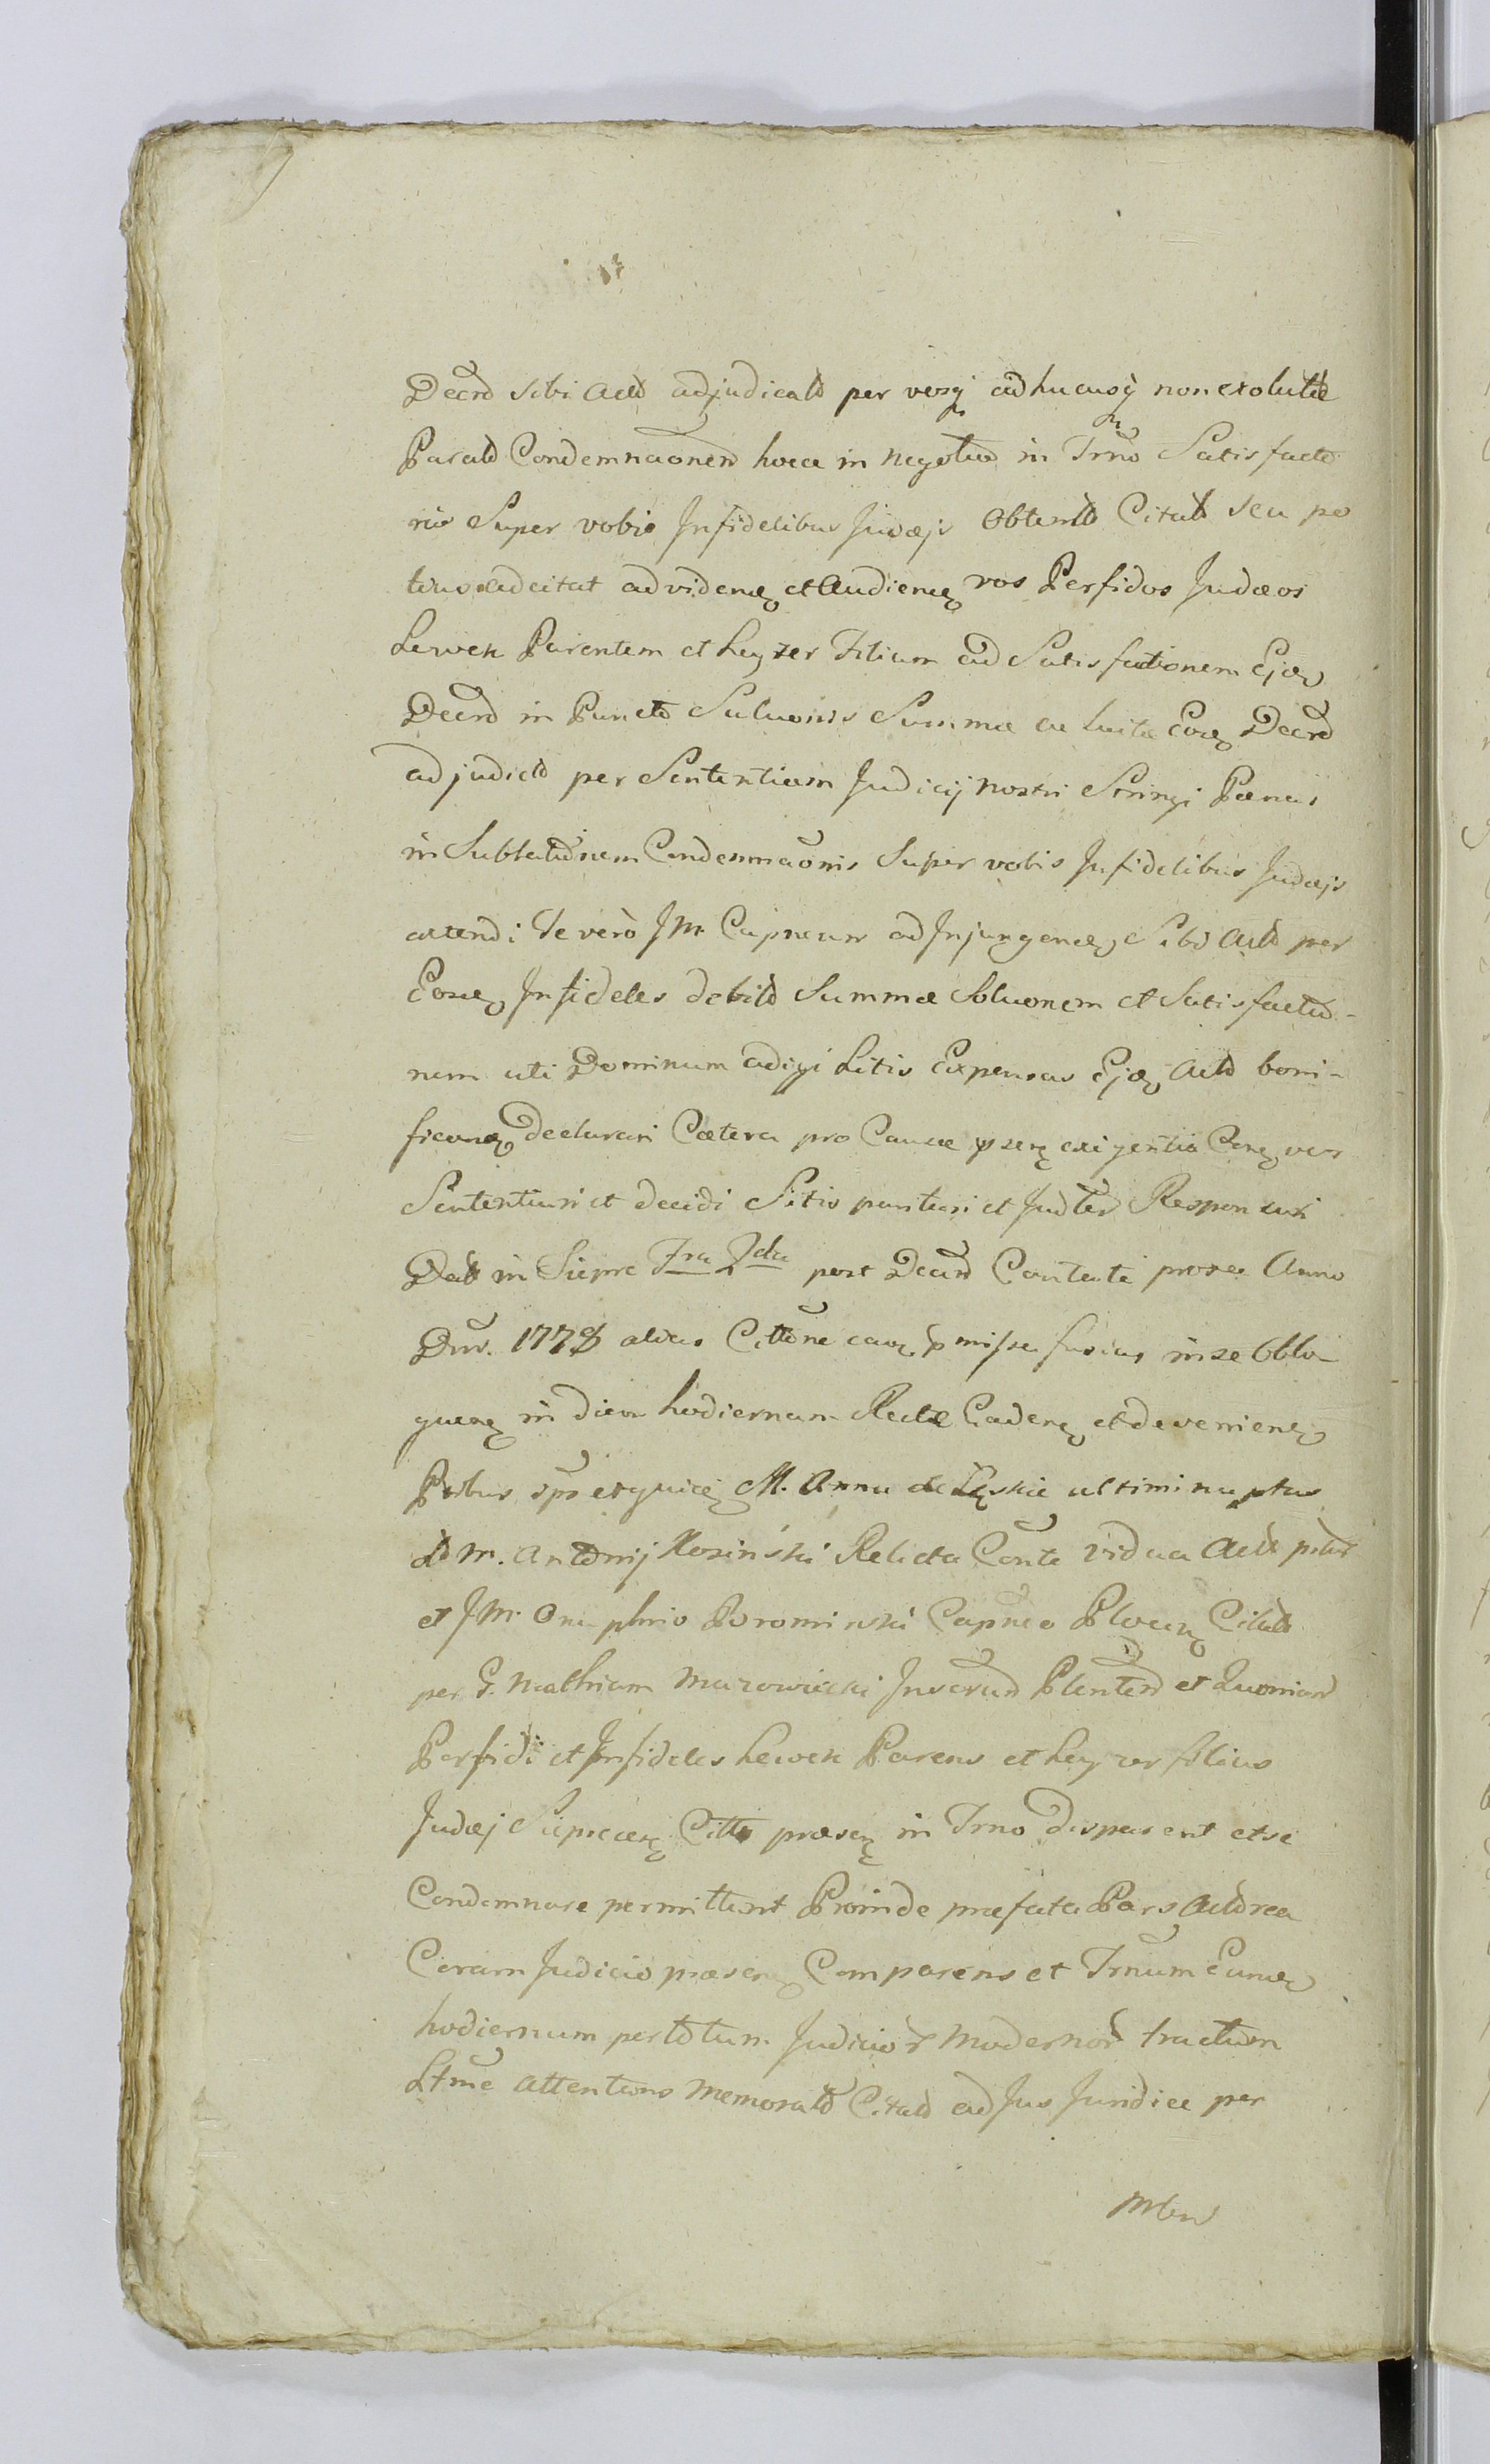 Decro sibi Acto adjudicato per vosq adhucusq non exoluto
Parato Condemnaonem hoca in Negotio in Trno Satisfacto
rio Super vobis Infidelibus Judæis Obtento Citat seu po
tius adcitat ad videnq et Audienq vos Perfidos Judæos
Lewek Parentem et Leyzer Filium ad Satisfactionem Ejq
Decro in Puncto Soluonis Summæ ac Luita Eoq Decro
adjudicto per Sententiam Judicij nostri Stringi Pænas
in Sublationem Condemnaonis Super vobis Infidelibus Judæis
extendi Te verò JM Capneum ad Injungenq Sibi Acto per
Eosq Infideles debito Summæ Soluonem et Satisfactio-
nem uti Dominum adigi Litis Expensas Ejq Acto boni-
ficanq declarari Cætera pro Causæ psenq exigentia Cirq vos
Sententiari et decidi Sitis parituri et Judter Responsuri
Datt in Sieprc Fra 2da post Decro Contente proxa Anno
Dni. 1778 alias Cittone eaq pmissa fusius in se Oblo
quenq in diem hodiernum Recte Cadenq et devenienq
Ptibus ipis etquiciq M. Anna de Leskie ultimi nuptus
M. Antonij Kosiński Relicta Conte vidua Acto
et JM. Onuphrio Borominski Capneo Plocenq Citato
per G. Mathiam Mazowiecki Juscrum Plenten et Quoniam
Perfidi et Infideles Lewek Parens et Leyzer filius
Judæj Sieprcenq Citti præsenq in Trno disparent et se
Condemnare permittunt Proinde præfata Pars Actorea
Coram Judicio præsenq Comparens et Trnum Eumq
hodiernum per totum Judicior Modernor tractum
Ltme Attentans Memorato Citato ad Jus Juridice per
Mtem